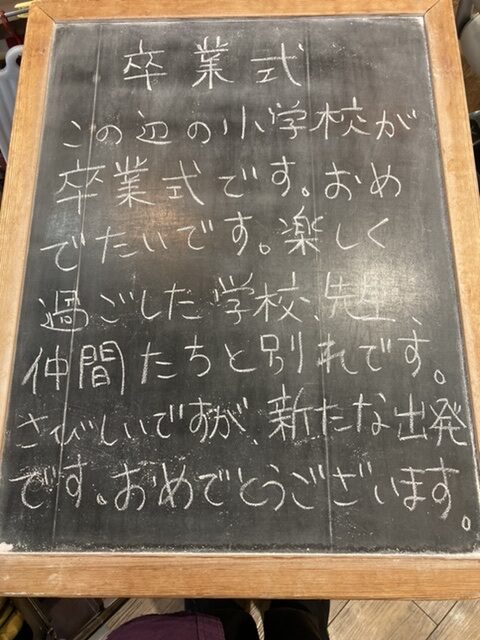 卒業式
この辺の小学校が
卒業式です。おめ
でたいです。楽しく
過ごした学校、先生、
仲間たちと別れです。
さびしいですが、新たな出発
です。おめでとうございます。